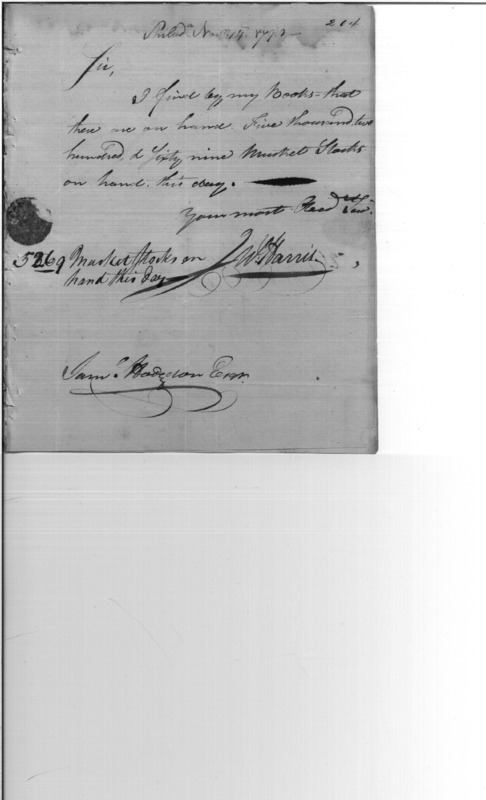 204
Philad.a Nov.
Sir,
I find by my Books that
there are on hand. Five thousand two
hundred, & Sixty nine Musket Stocks
on hand. this day.
Your most
5269 Musket Stocks on
hand this day
W Harris
Sam.l Hodgdon Esqr.